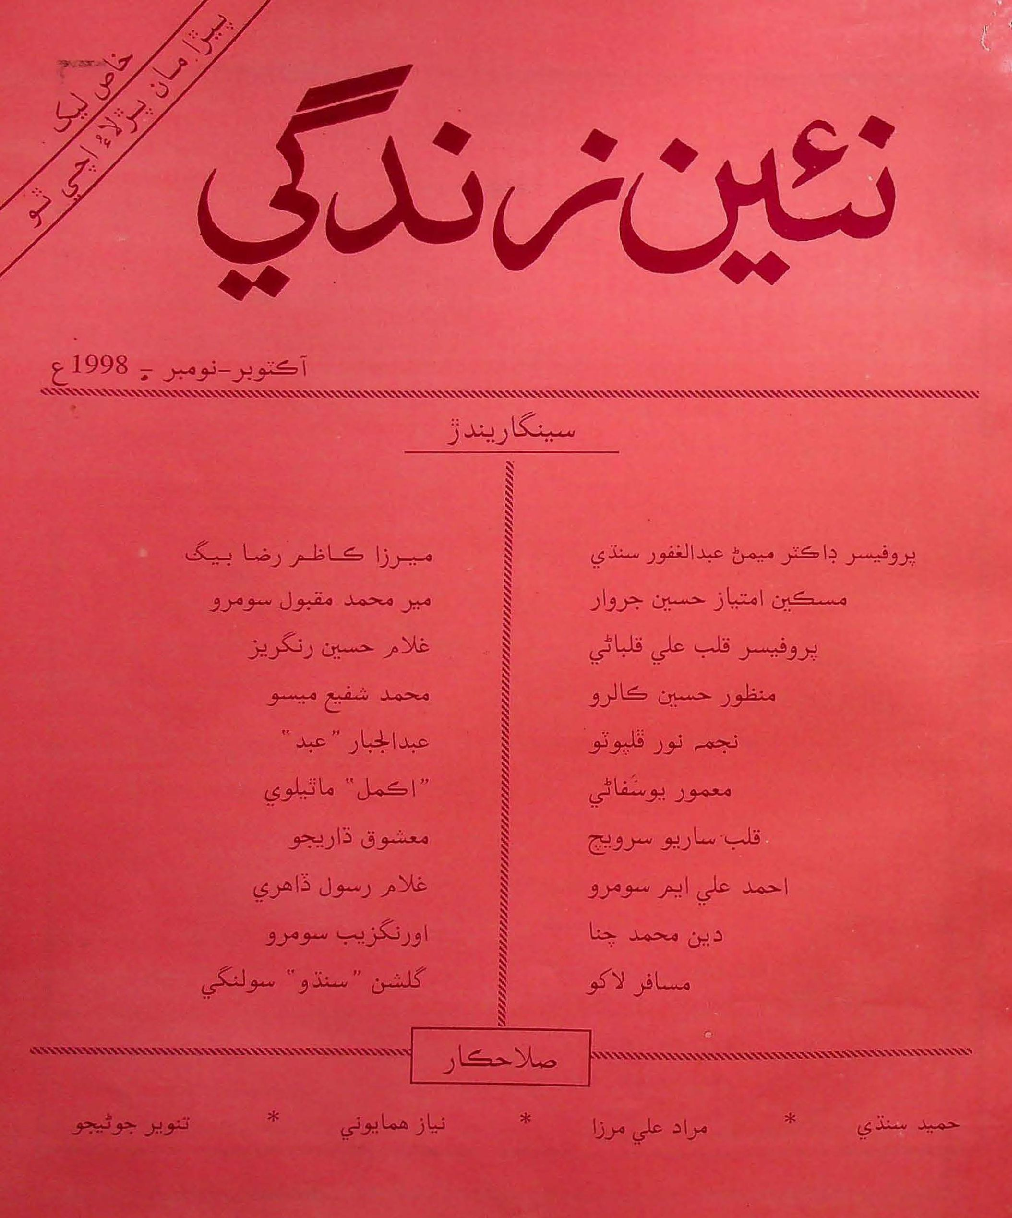 خاص ليک
ٻيڙا مان پڙلاءُ اچي ٿو
نئين زندگي
آڪٽوبر-نومبر - 1998ع
سينگاريندڙ
پروفيسر ڊاڪٽر ميمڻ عبدالغفور سنڌي
مسڪين امتياز حسين جروار
پروفيسر قلب علي قلباڻي
منظور حسين ڪالرو
نجمہ نور ڦلپوٽو
معمور يوسفاڻي
قلب ساريو سرويچ
احمد علي ايم سومرو
دين محمد چنا
مسافر لاکو
ميرزا ڪاظم رضا بيگ
مير محمد مقبول سومرو
غلام حسين رنگريز
محمد شفيع ميسو
عبدالجبار "عبد"
"اڪمل" ماٿيلوي
معشوق ڌاريجو
غلام رسول ڏاهري
اورنگزيب سومرو
گلشن "سنڌو" سولنگي
صلاحڪار
حميد سنڌي * مراد علي مرزا * نياز همايوني * تنوير جوڻيجو